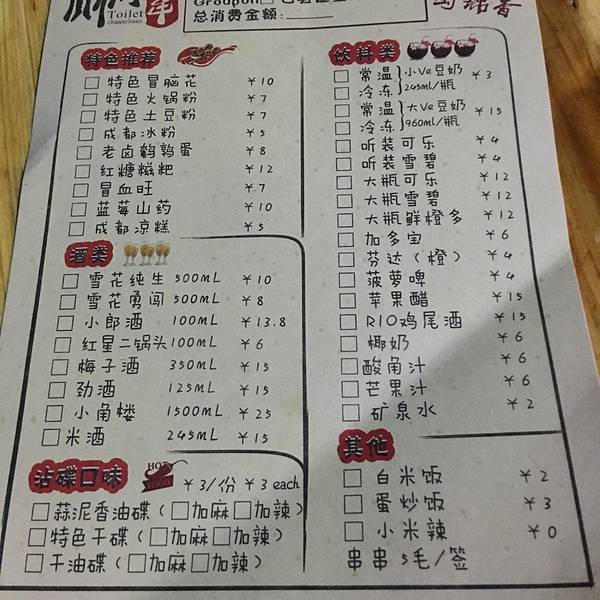 Toilet
chuanchuan
串
Groupon
总消费金额:
特色推荐
特色冒脑花 ¥10
特色火锅粉 ¥7
特色土豆粉 ¥7
成都冰粉 ¥5
老卤鹌鹑蛋 ¥8
红糖糍粑 ¥12
冒血旺 ¥7
蓝莓山药 ¥10
成都凉糕 ¥5
酒类
雪花纯生 500ML ¥10
雪花勇闯 500ML ¥8
小郎酒 100ML ¥13.8
红星二锅头 100ML ¥6
梅子酒 350ML ¥15
劲酒 125ML ¥15
小角楼 1500ML ¥25
米酒 245ML ¥15
沾碟口味 HOT ¥3/份 ¥3 each
蒜泥香油碟（ 加麻 加辣）
特色干碟（ 加麻 加辣）
干油碟（ 加麻 加辣）
饮料类
常温 小Ve豆奶 ¥3
冷冻 245ml/瓶
常温 大Ve豆奶 ¥15
冷冻 960ml/瓶
听装可乐 ¥4
听装雪碧 ¥4
大瓶可乐 ¥12
大瓶雪碧 ¥12
大瓶鲜橙多 ¥12
加多宝 ¥6
芬达（橙） ¥4
菠萝啤 ¥4
苹果醋 ¥15
RIO鸡尾酒 ¥15
椰奶 ¥6
酸角汁 ¥6
芒果汁 ¥6
矿泉水 ¥2
其他
白米饭 ¥2
蛋炒饭 ¥3
小米辣 ¥0
串串 5毛/签